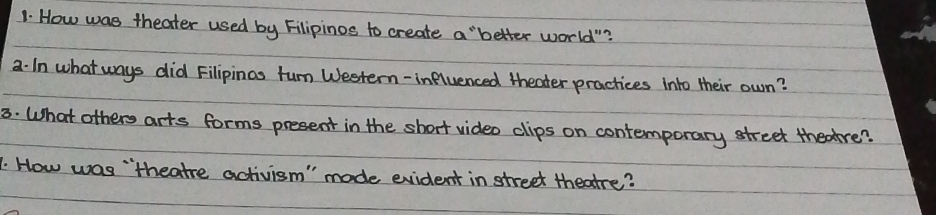 1. How was theater used by Filipinos to create a "better world"?
2. In what ways did Filipinos turn Western-influenced theater practices into their own?
3. What others arts forms present in the short video clips on contemporary street theatre?
1. How was "theatre activism" made evident in street theatre?